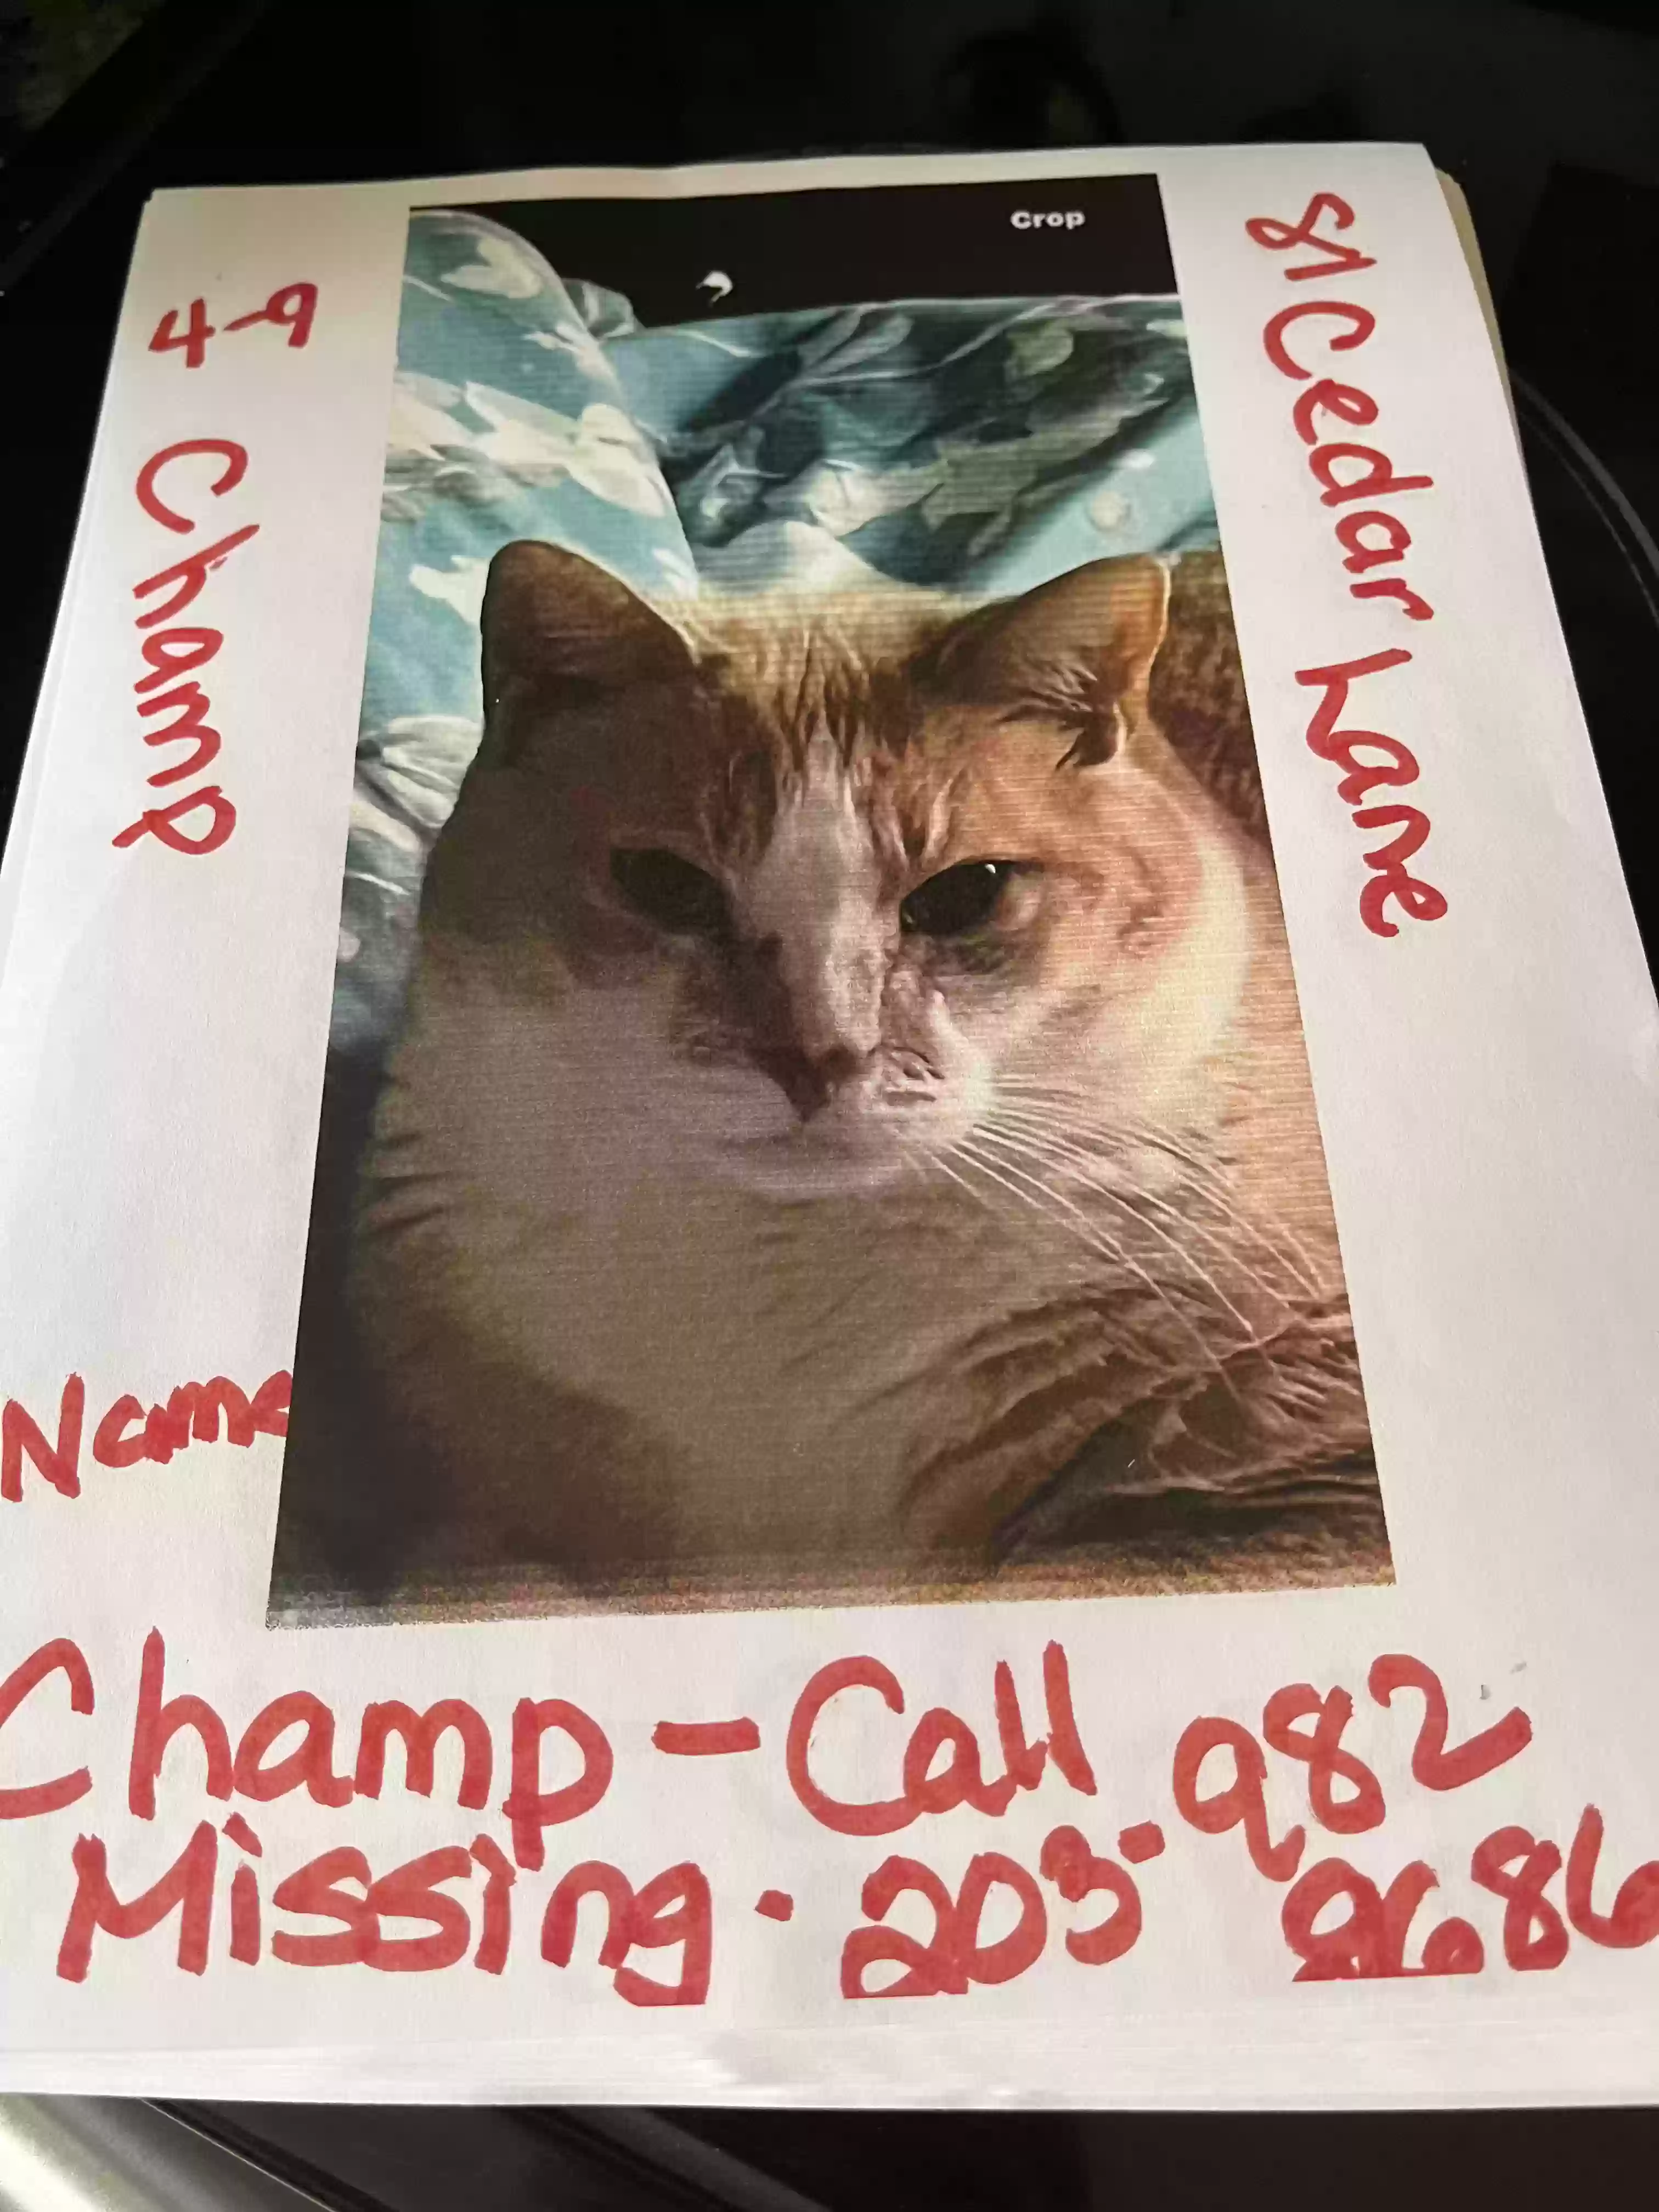 Crop
81 Cedar Lane
4-9
Champ
Name
Champ - Call 982
Missing. 203- 9686